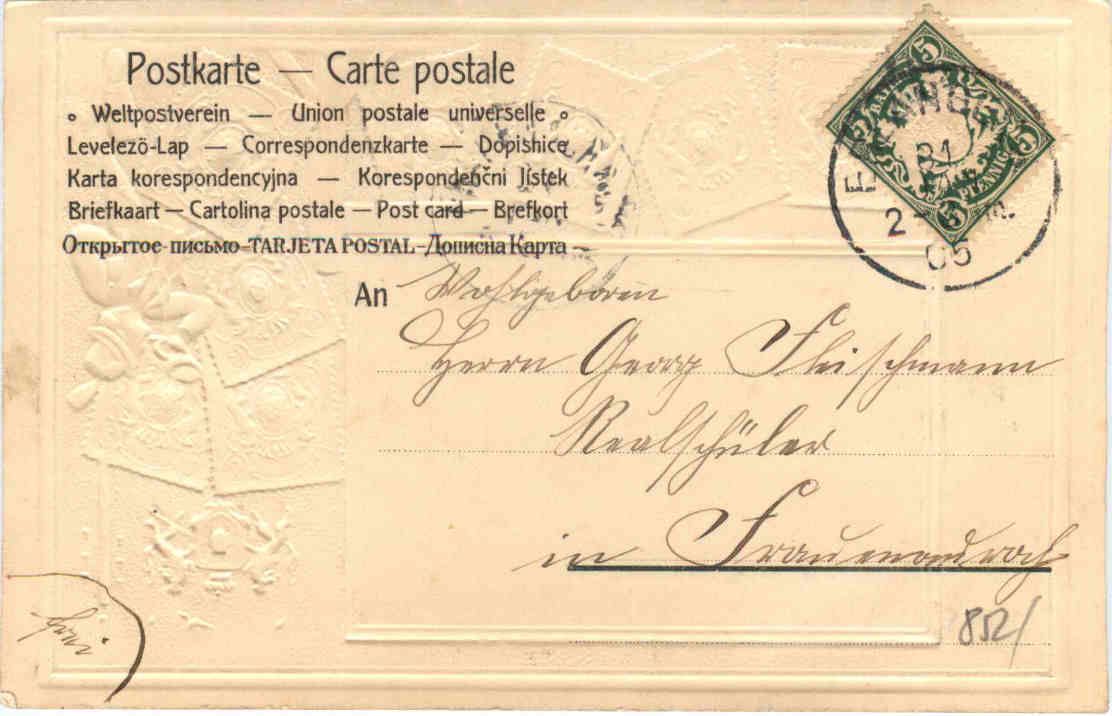 Postkarte — Carte postale
Weltpostverein — Union postale universelle
Levelezö-Lap — Correspondenzkarte — Dopisnice
Karta korespondencyjna — Korespondenčni lístek
Briefkaart — Cartolina postale — Post card — Brefkort
Открытое письмо — TARJETA POSTAL — Дописна Карта
5
PFENNIG
2
05
An Wohlgeboren
Herrn Georg Fleischmann
Realschüler
in Frauenaurach
frei
852/